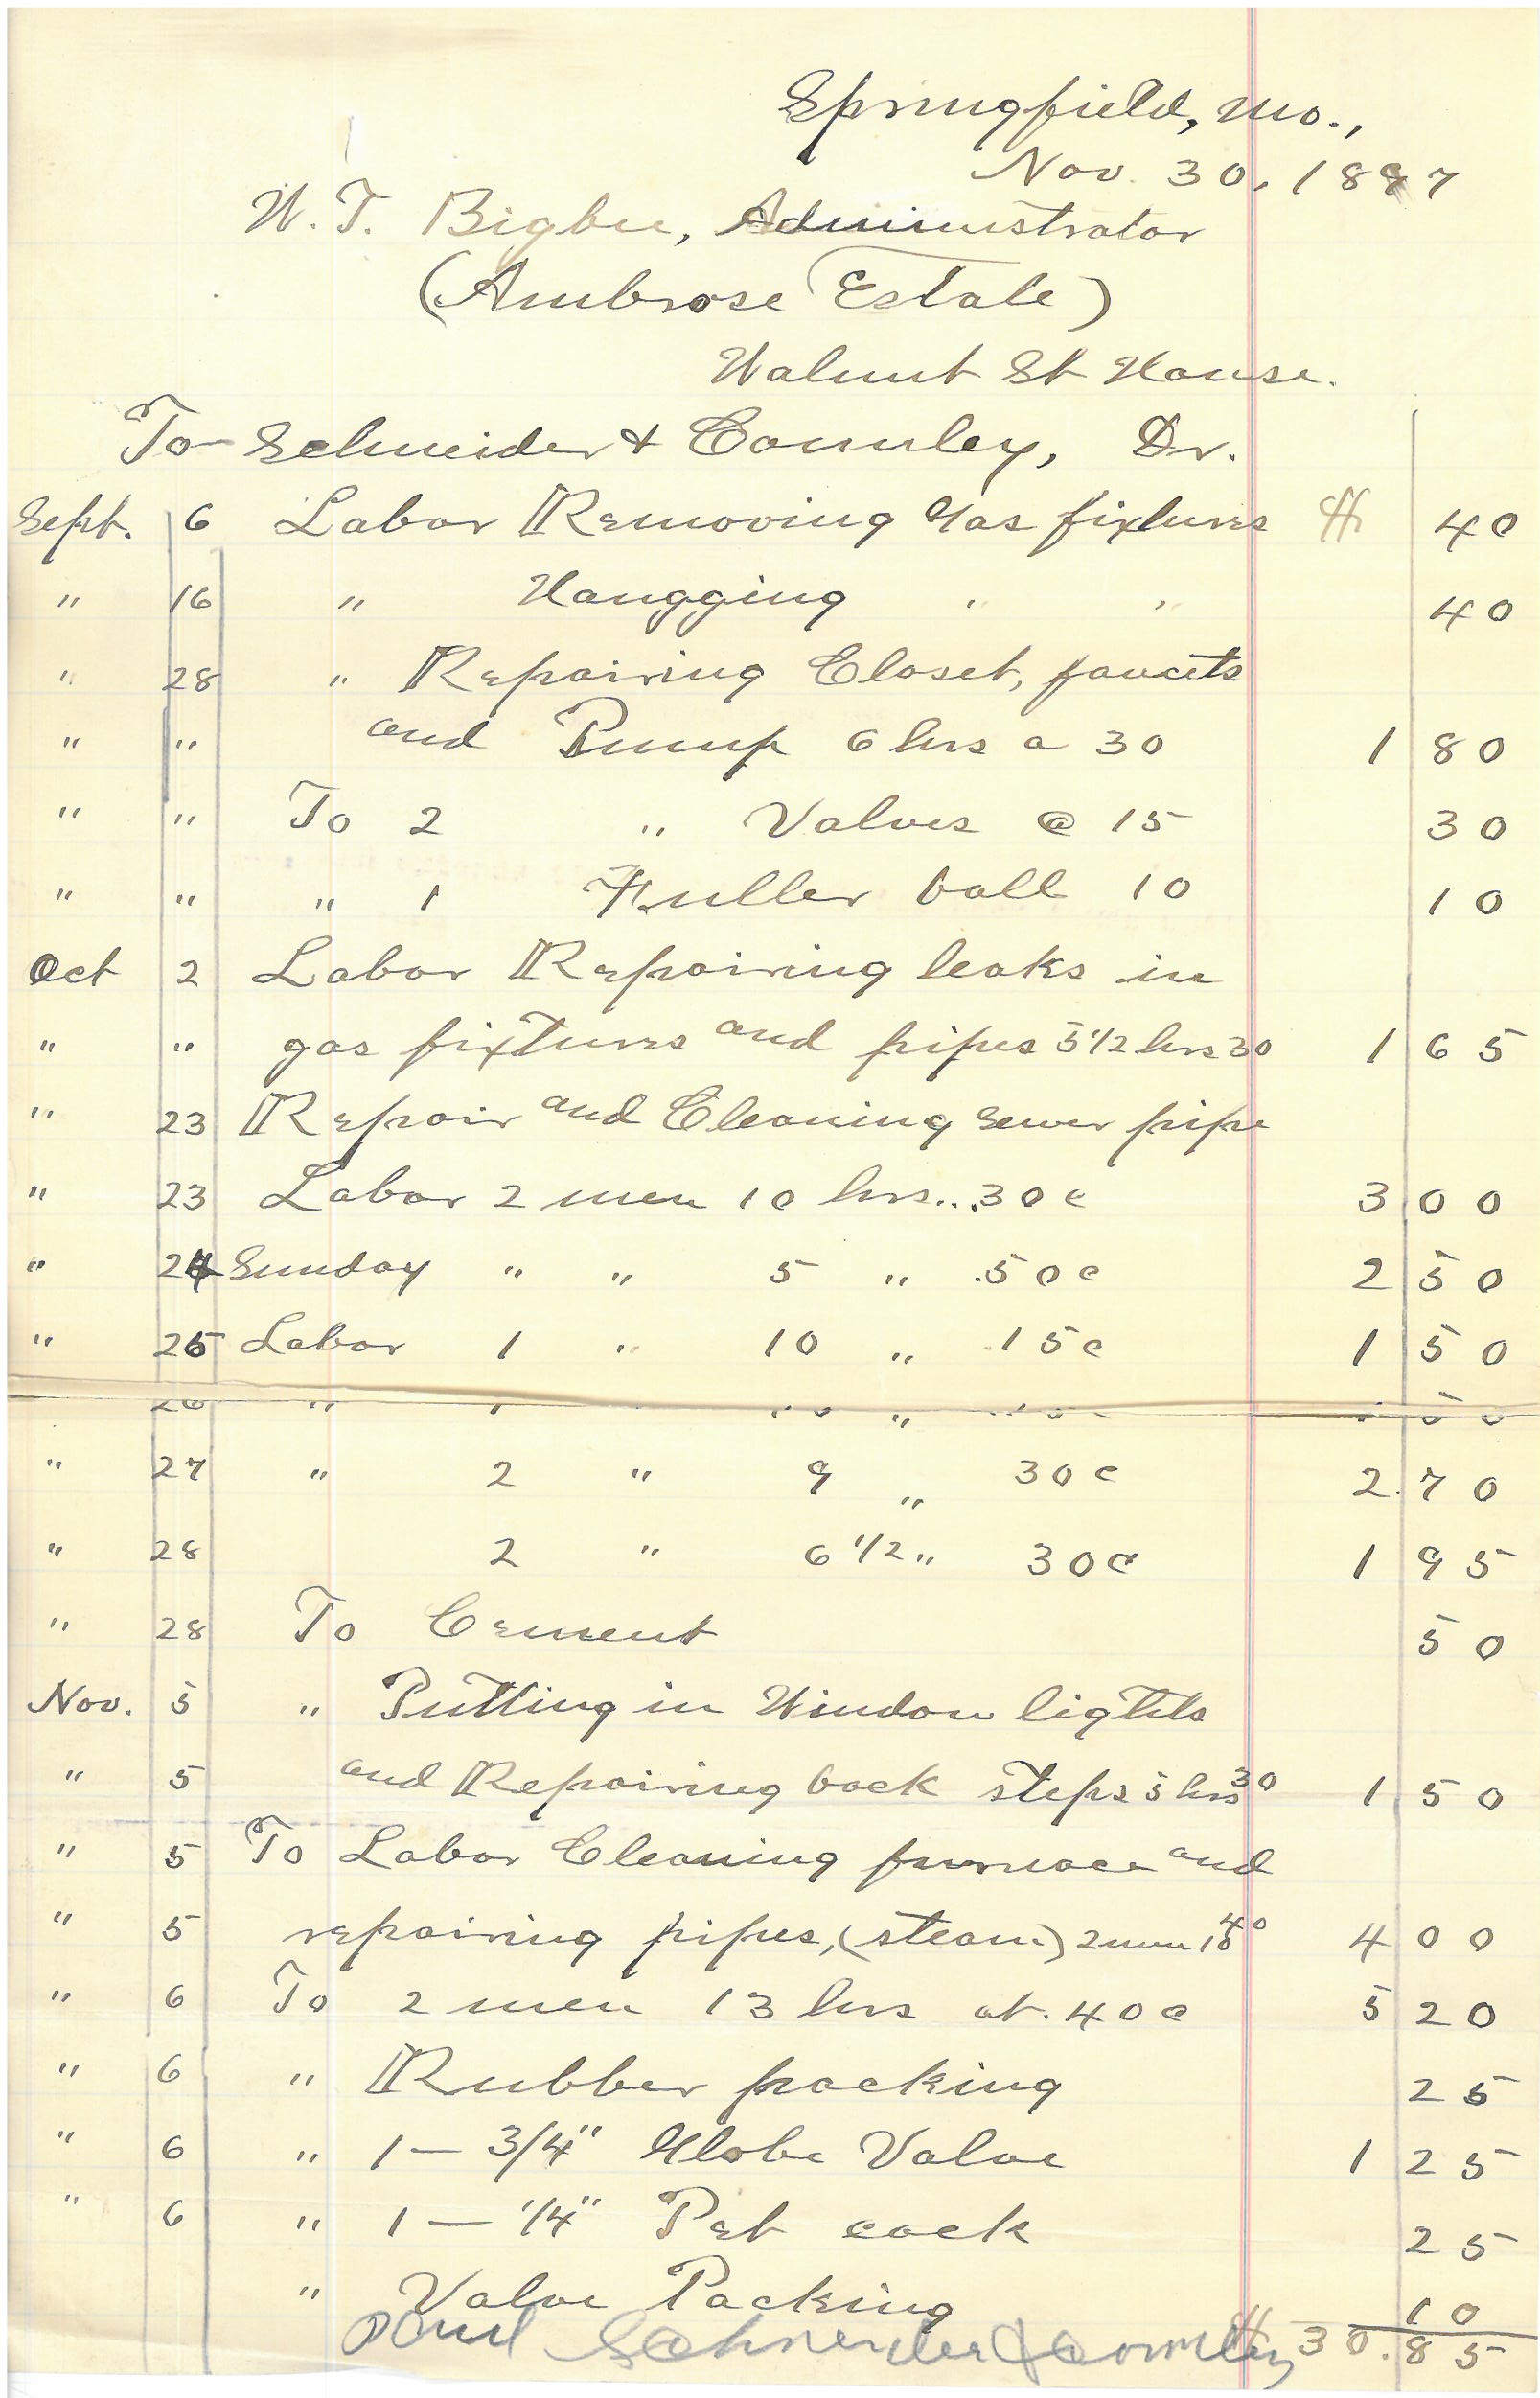 Springfield, Mo.,
Nov. 30, 1897
W. T. Bigbee, Administrator
(Ambrose Estate)
Walnut St House.
To Schneider & Comley, Dr.
Sept. 6 Labor Removing Gas fixtures $ 40
" 16 " Hangging " " 40
" 28 " Repairing Closet, faucets
" " and Pump 6 hrs a 30 1 80
" " To 2 " Valves @ 15 30
" " " 1 Fuller ball 10 10
Oct 2 Labor Repairing leaks in
" " gas fixtures and pipes 5 1/2 hrs 30 1 65
" 23 Repair and Cleaning sewer pipe
" 23 Labor 2 men 10 hrs...30c 3 00
" 24 Sunday " " 5 " .50c 2 50
" 25 Labor 1 " 10 " .15c 1 50
26 " 1 "
" 27 " 2 " 9 " 30c 2.70
" 28 2 " 6 1/2 " 30c 1 95
" 28 To Cement 50
Nov. 5 " Putting in Window lights
" 5 and Repairing back steps 5 hrs 30 1 50
" 5 To Labor Cleaning furnace and
" 5 repairing pipes, (steam) 2 men 10 40 4 00
" 6 To 2 men 13 hrs at. 40c 5 20
" 6 " Rubber packing 25
" 6 " 1 — 3/4" Globe Valve 1 25
" 6 " 1 — 1/4" Pet cock 25
" Valve Packing 10
Paul Schneider & Comley $ 30.85